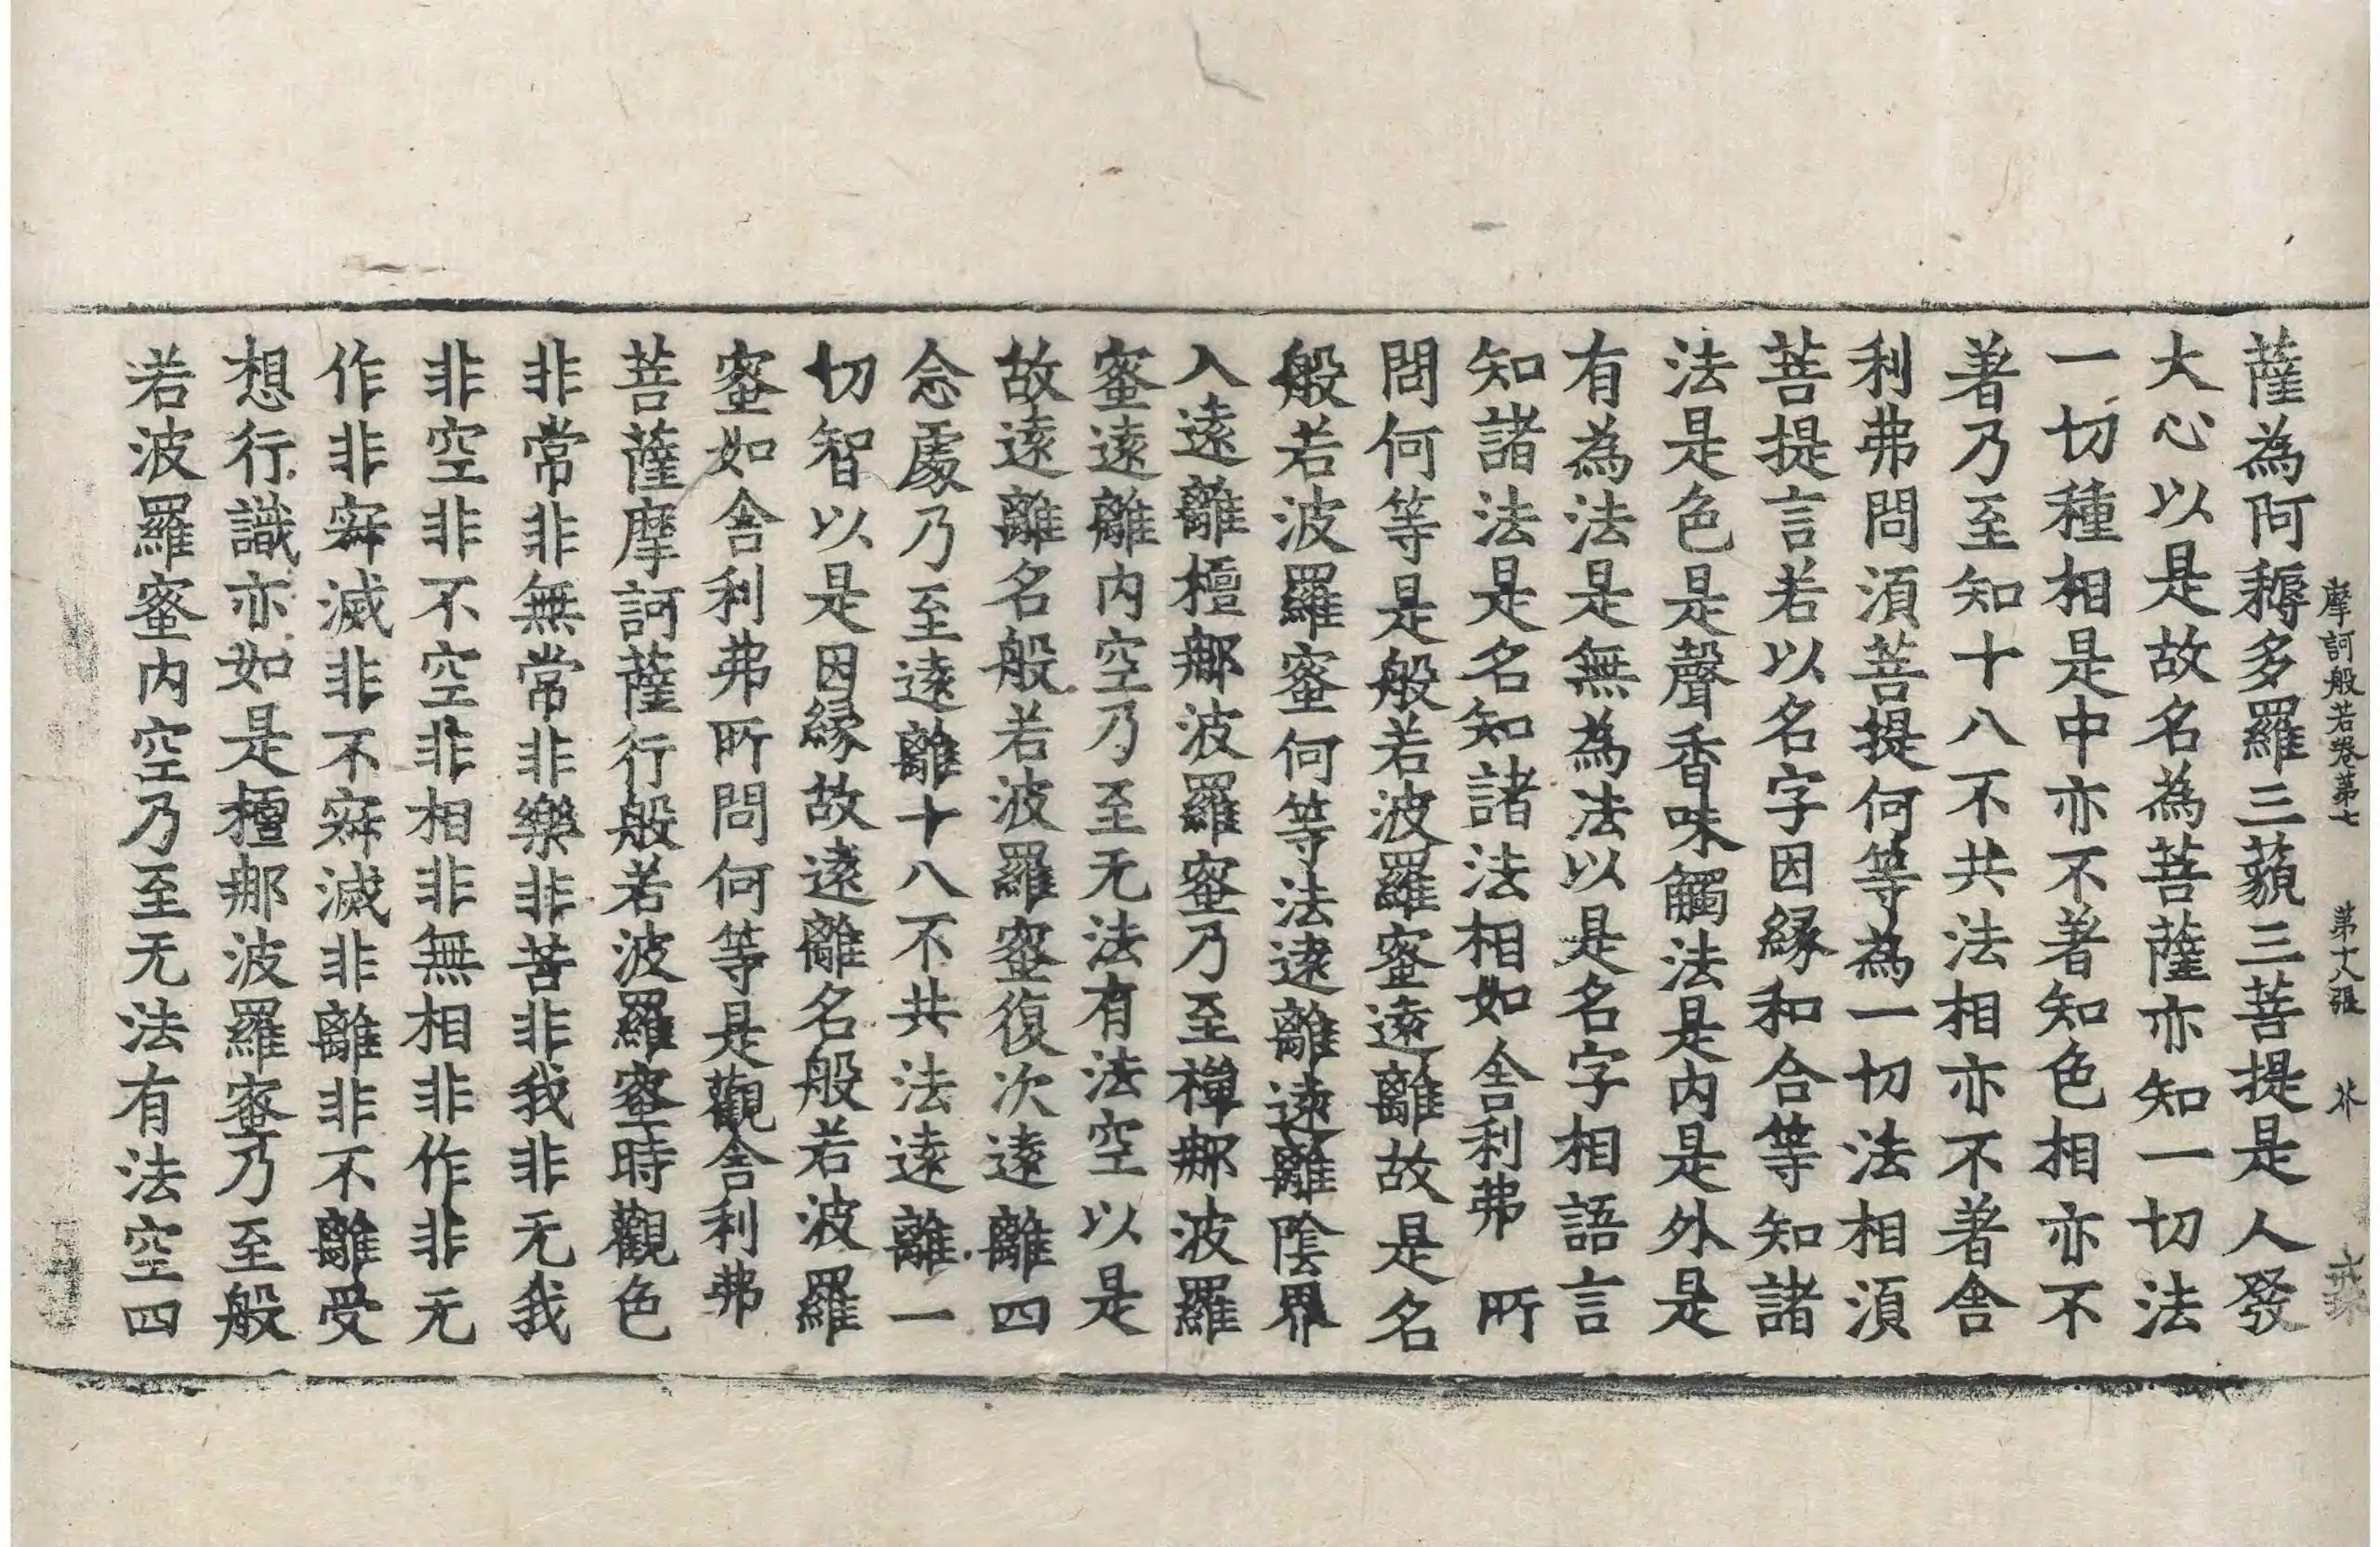 摩訶般若卷第七　第十八張　芥
薩為阿耨多羅三藐三菩提是人發
大心以是故名為菩薩亦知一切法
一切種相是中亦不著知色相亦不
著乃至知十八不共法相亦不著舍
利弗問湏菩提何等為一切法相湏
菩提言若以名字因縁和合等知諸
法是色是聲香味觸法是内是外是
有為法是無為法以是名字相語言
知諸法是名知諸法相如舍利弗所
問何等是般若波羅蜜遠離故是名
般若波羅蜜何等法遠離遠離陰界
入遠離檀那波羅蜜乃至禪那波羅
蜜遠離内空乃至无法有法空以是
故遠離名般若波羅蜜復次遠離四
念處乃至遠離十八不共法遠離一
切智以是因縁故遠離名般若波羅
蜜如舍利弗所問何等是觀舍利弗
菩薩摩訶薩行般若波羅蜜時觀色
非常非無常非樂非苦非我非无我
非空非不空非相非無相非作非无
作非寂滅非不寂滅非離非不離受
想行識亦如是檀那波羅蜜乃至般
若波羅蜜内空乃至无法有法空四